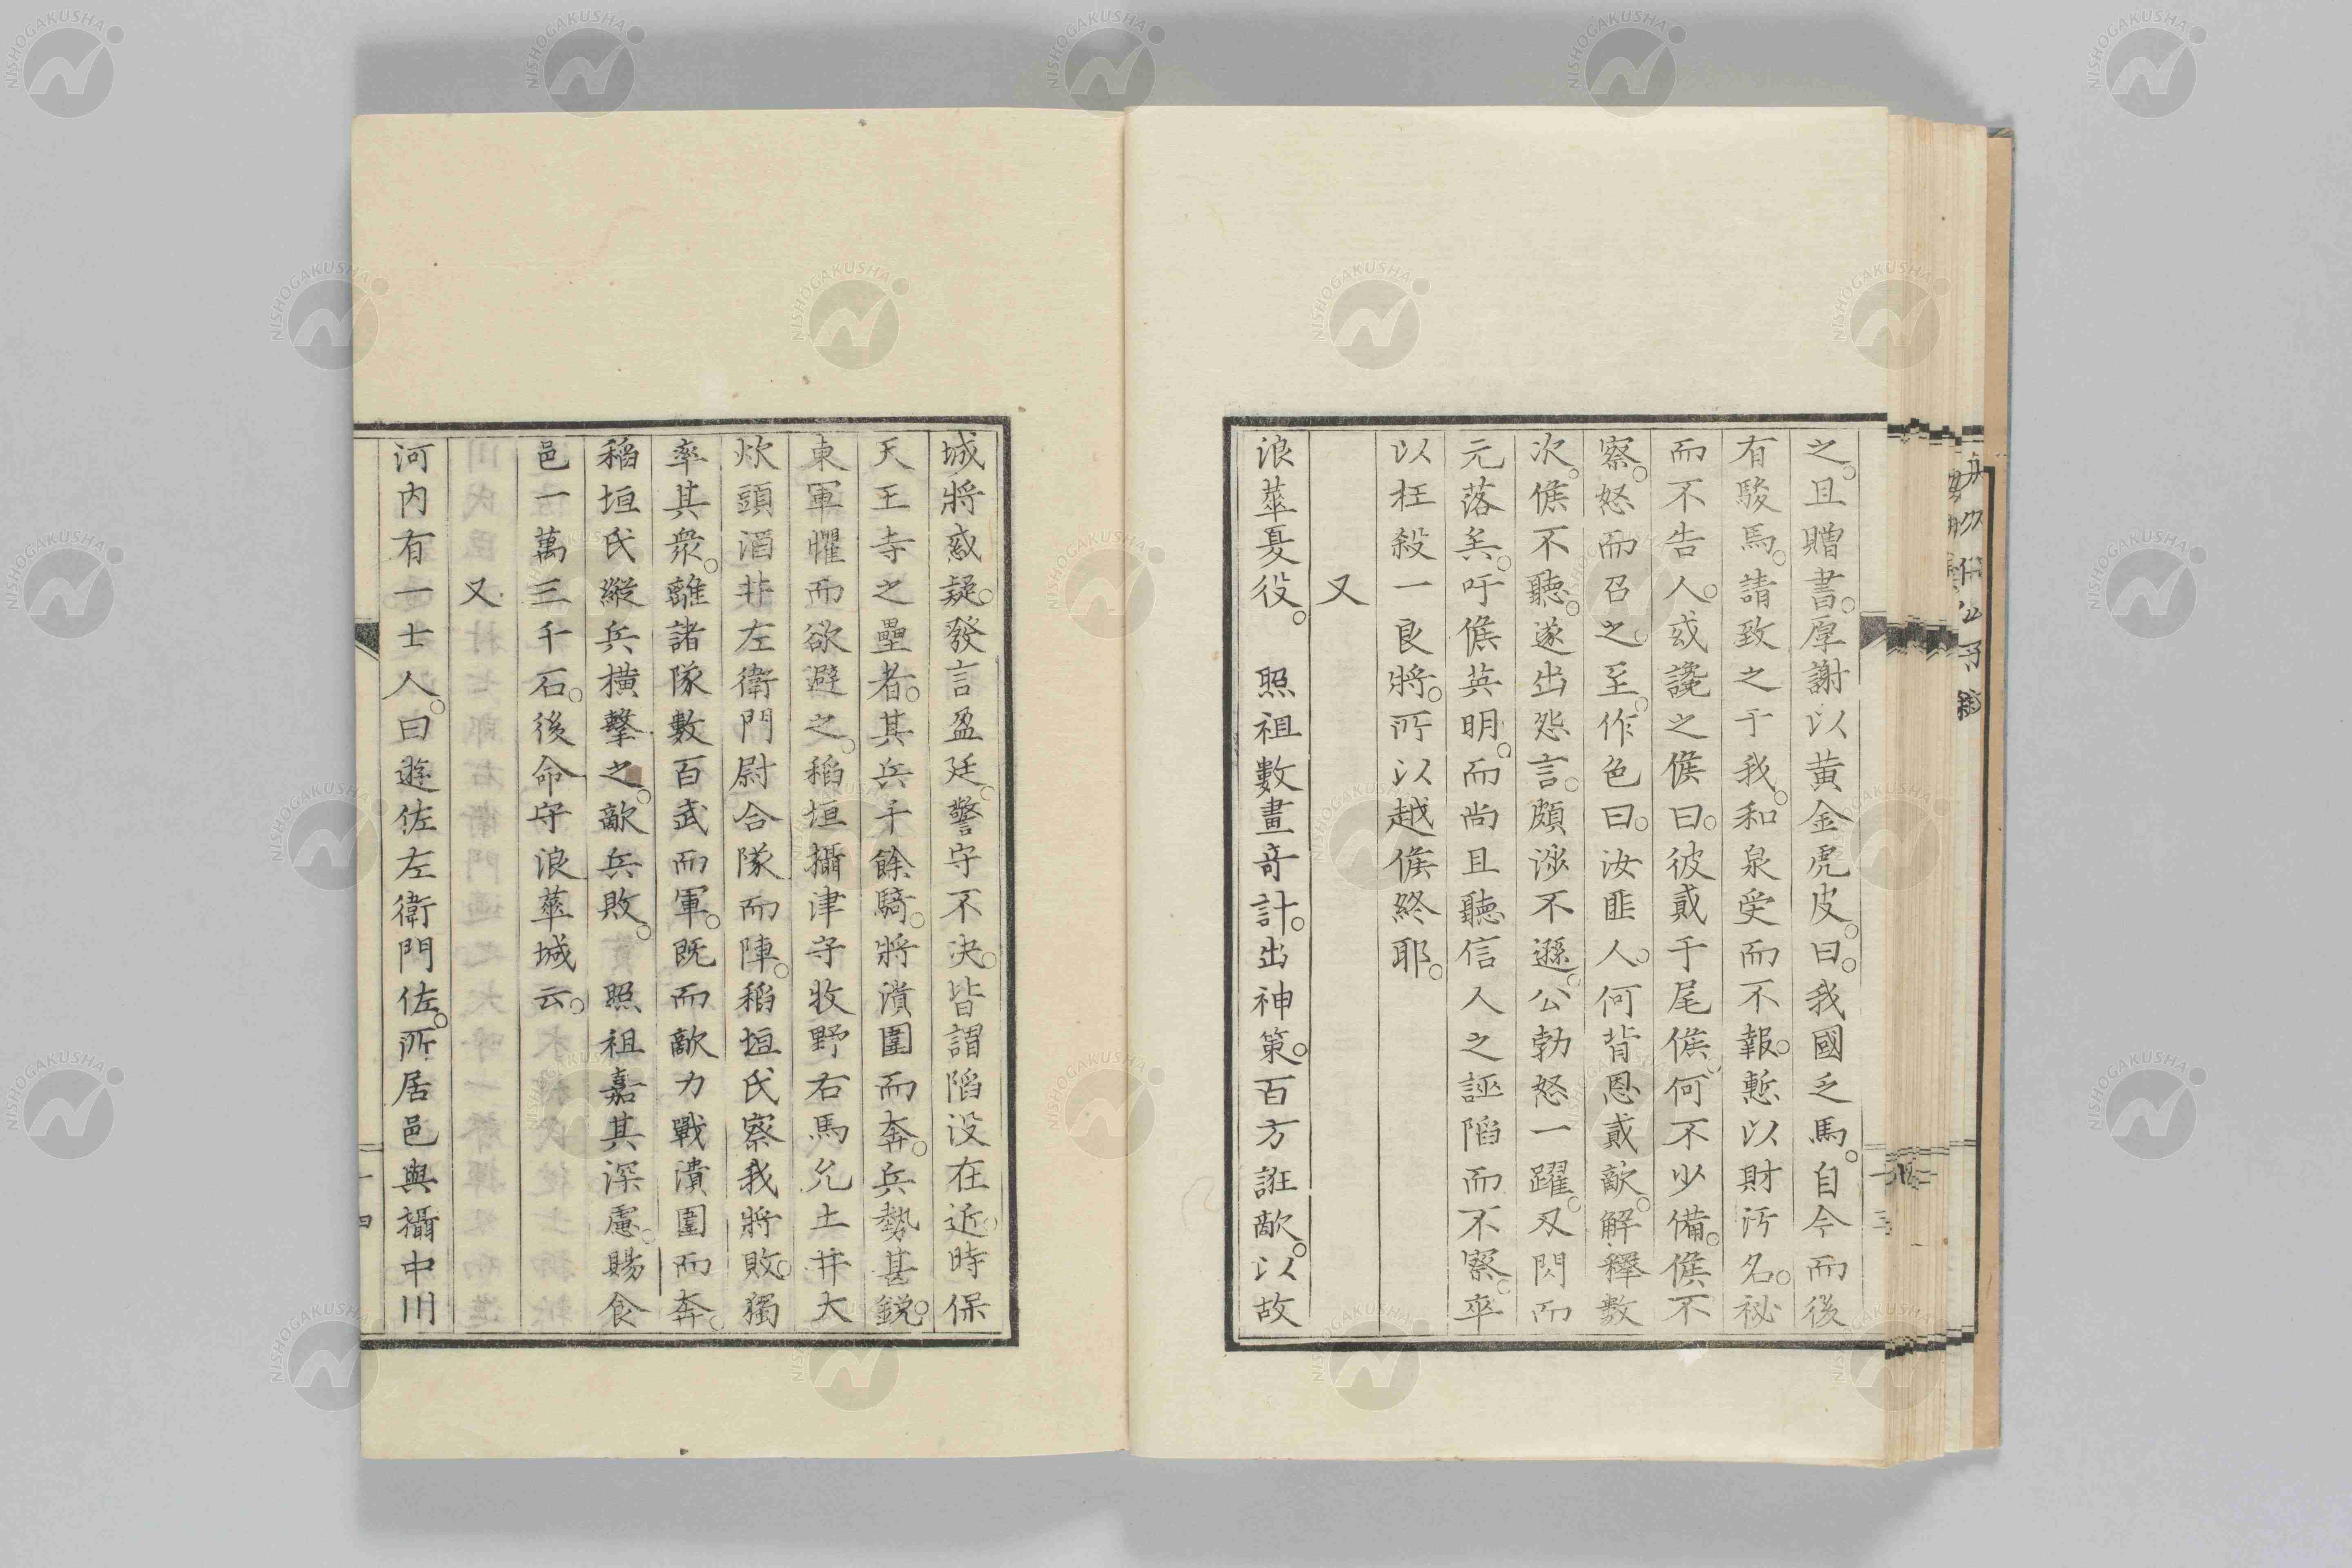 之。且贈書。厚謝以黄金虎皮。曰。我國乏馬。自今而後
有駿馬。請致之于我。和泉受而不報。慙以財汚名。祕
而不告人。或讒之侯曰。彼貳于尾侯。何不少備。侯不
察。怒而召之。至。作色曰。汝匪人。何背恩貳敵。解釋數
次。侯不聽。遂出怨言。頗涉不遜。公勃怒一躍。刄閃而
元落矣。吁侯英明。而尚且聽信人之誣陷而不察。卒
以枉殺一良將。所以越侯終耶。
又
浪華夏役。照祖數畫奇計。出神策。百方誑敵。以故
城將惑疑。發言盈廷。警守不決。皆謂陷没在近。時保
天王寺之壘者。其兵千餘騎。將潰圍而奔。兵勢甚鋭。
東軍懼而欲避之。稻垣攝津守牧野右馬允土井大
炊頭酒井左衛門尉合隊而陣。稻垣氏察我將敗。獨
率其衆。離諸隊數百武而軍。既而敵力戰潰圍而奔。
稻垣氏縱兵横擊之。敵兵敗。照祖嘉其深慮。賜食
邑一萬三千石。後命守浪華城云。
又
河内有一士人。曰遊佐左衛門佐。所居邑與攝中川